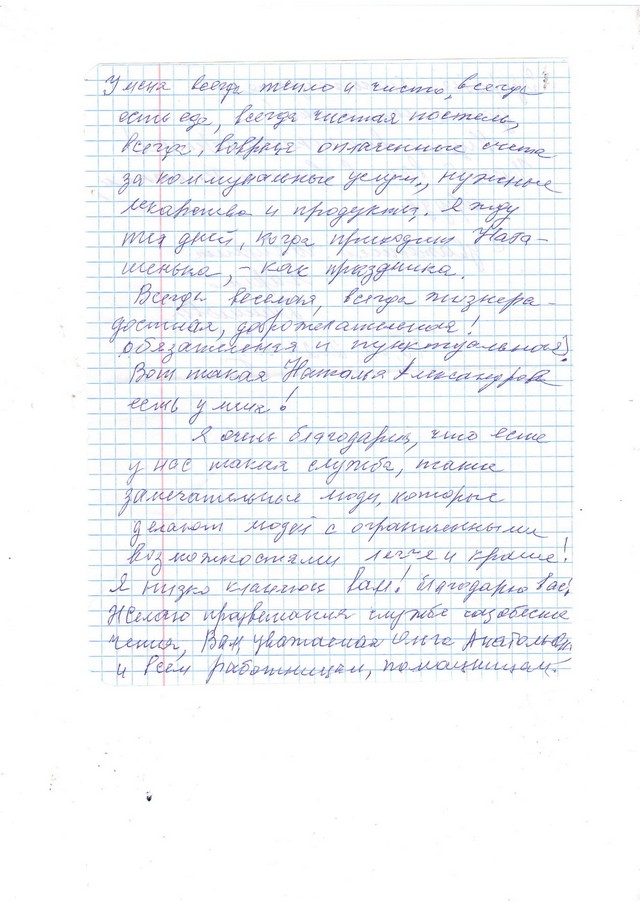 У меня всегда тепло и чисто, всегда
есть еда, всегда чистая постель,
всегда, вовремя оплаченные счета
за коммунальные услуги, нужные
лекарства и продукты. Я жду
тех дней, когда приходит Ната-
шенька, - как праздника.
Всегда веселая, всегда жизнера-
достная, доброжелательная!
обязательная и пунктуальная!
Вот такая Наталья Александровна
есть у меня!
Я очень благодарна, что есть
у нас такая служба, такие
замечательные люди, которые
делают людей с ограниченными
возможностями легче и краше!
Я низко кланяюсь вам! Благодарю Вас!
Желаю процветания службе соцобеспе
чения, Вам, уважаемая Анатольевна
и всем работницам, помощницам.